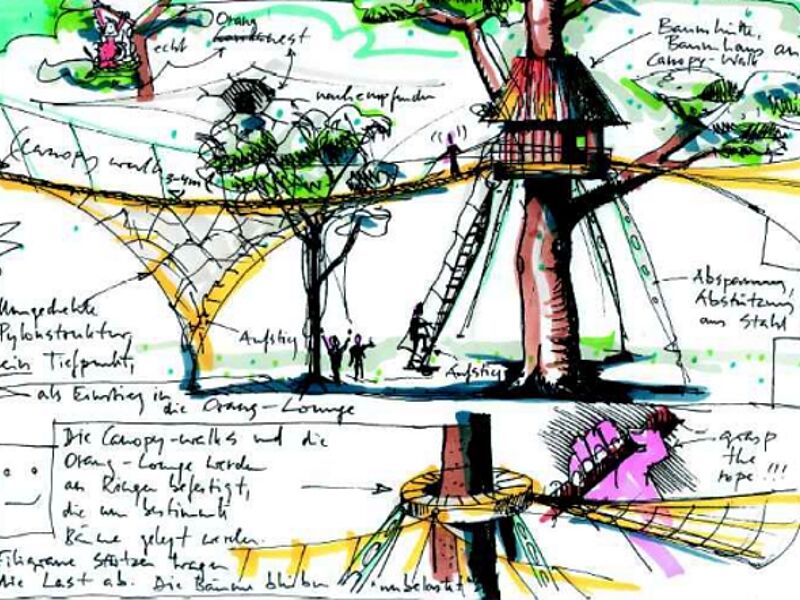 Orang
nest
echt
nachempfunden
Baumhütte,
Baumhaus am
Canopy-Walk
Canopy walk
3-4m
Umgedrehte
Pylonstruktur,
ein Tiefpunkt,
als Einstieg in
die Orang-Lounge
Aufstieg
Aufstieg
Abspannung,
Abstützung
aus Stahl
Die Canopy-walks und die
Orang-Lounge werden
an Ringen befestigt,
die um bestimmte
Bäume gelegt werden.
Filigrane Stützen tragen
die Last ab. Die Bäume bleiben "unbelastet"
grasp
the
rope!!!